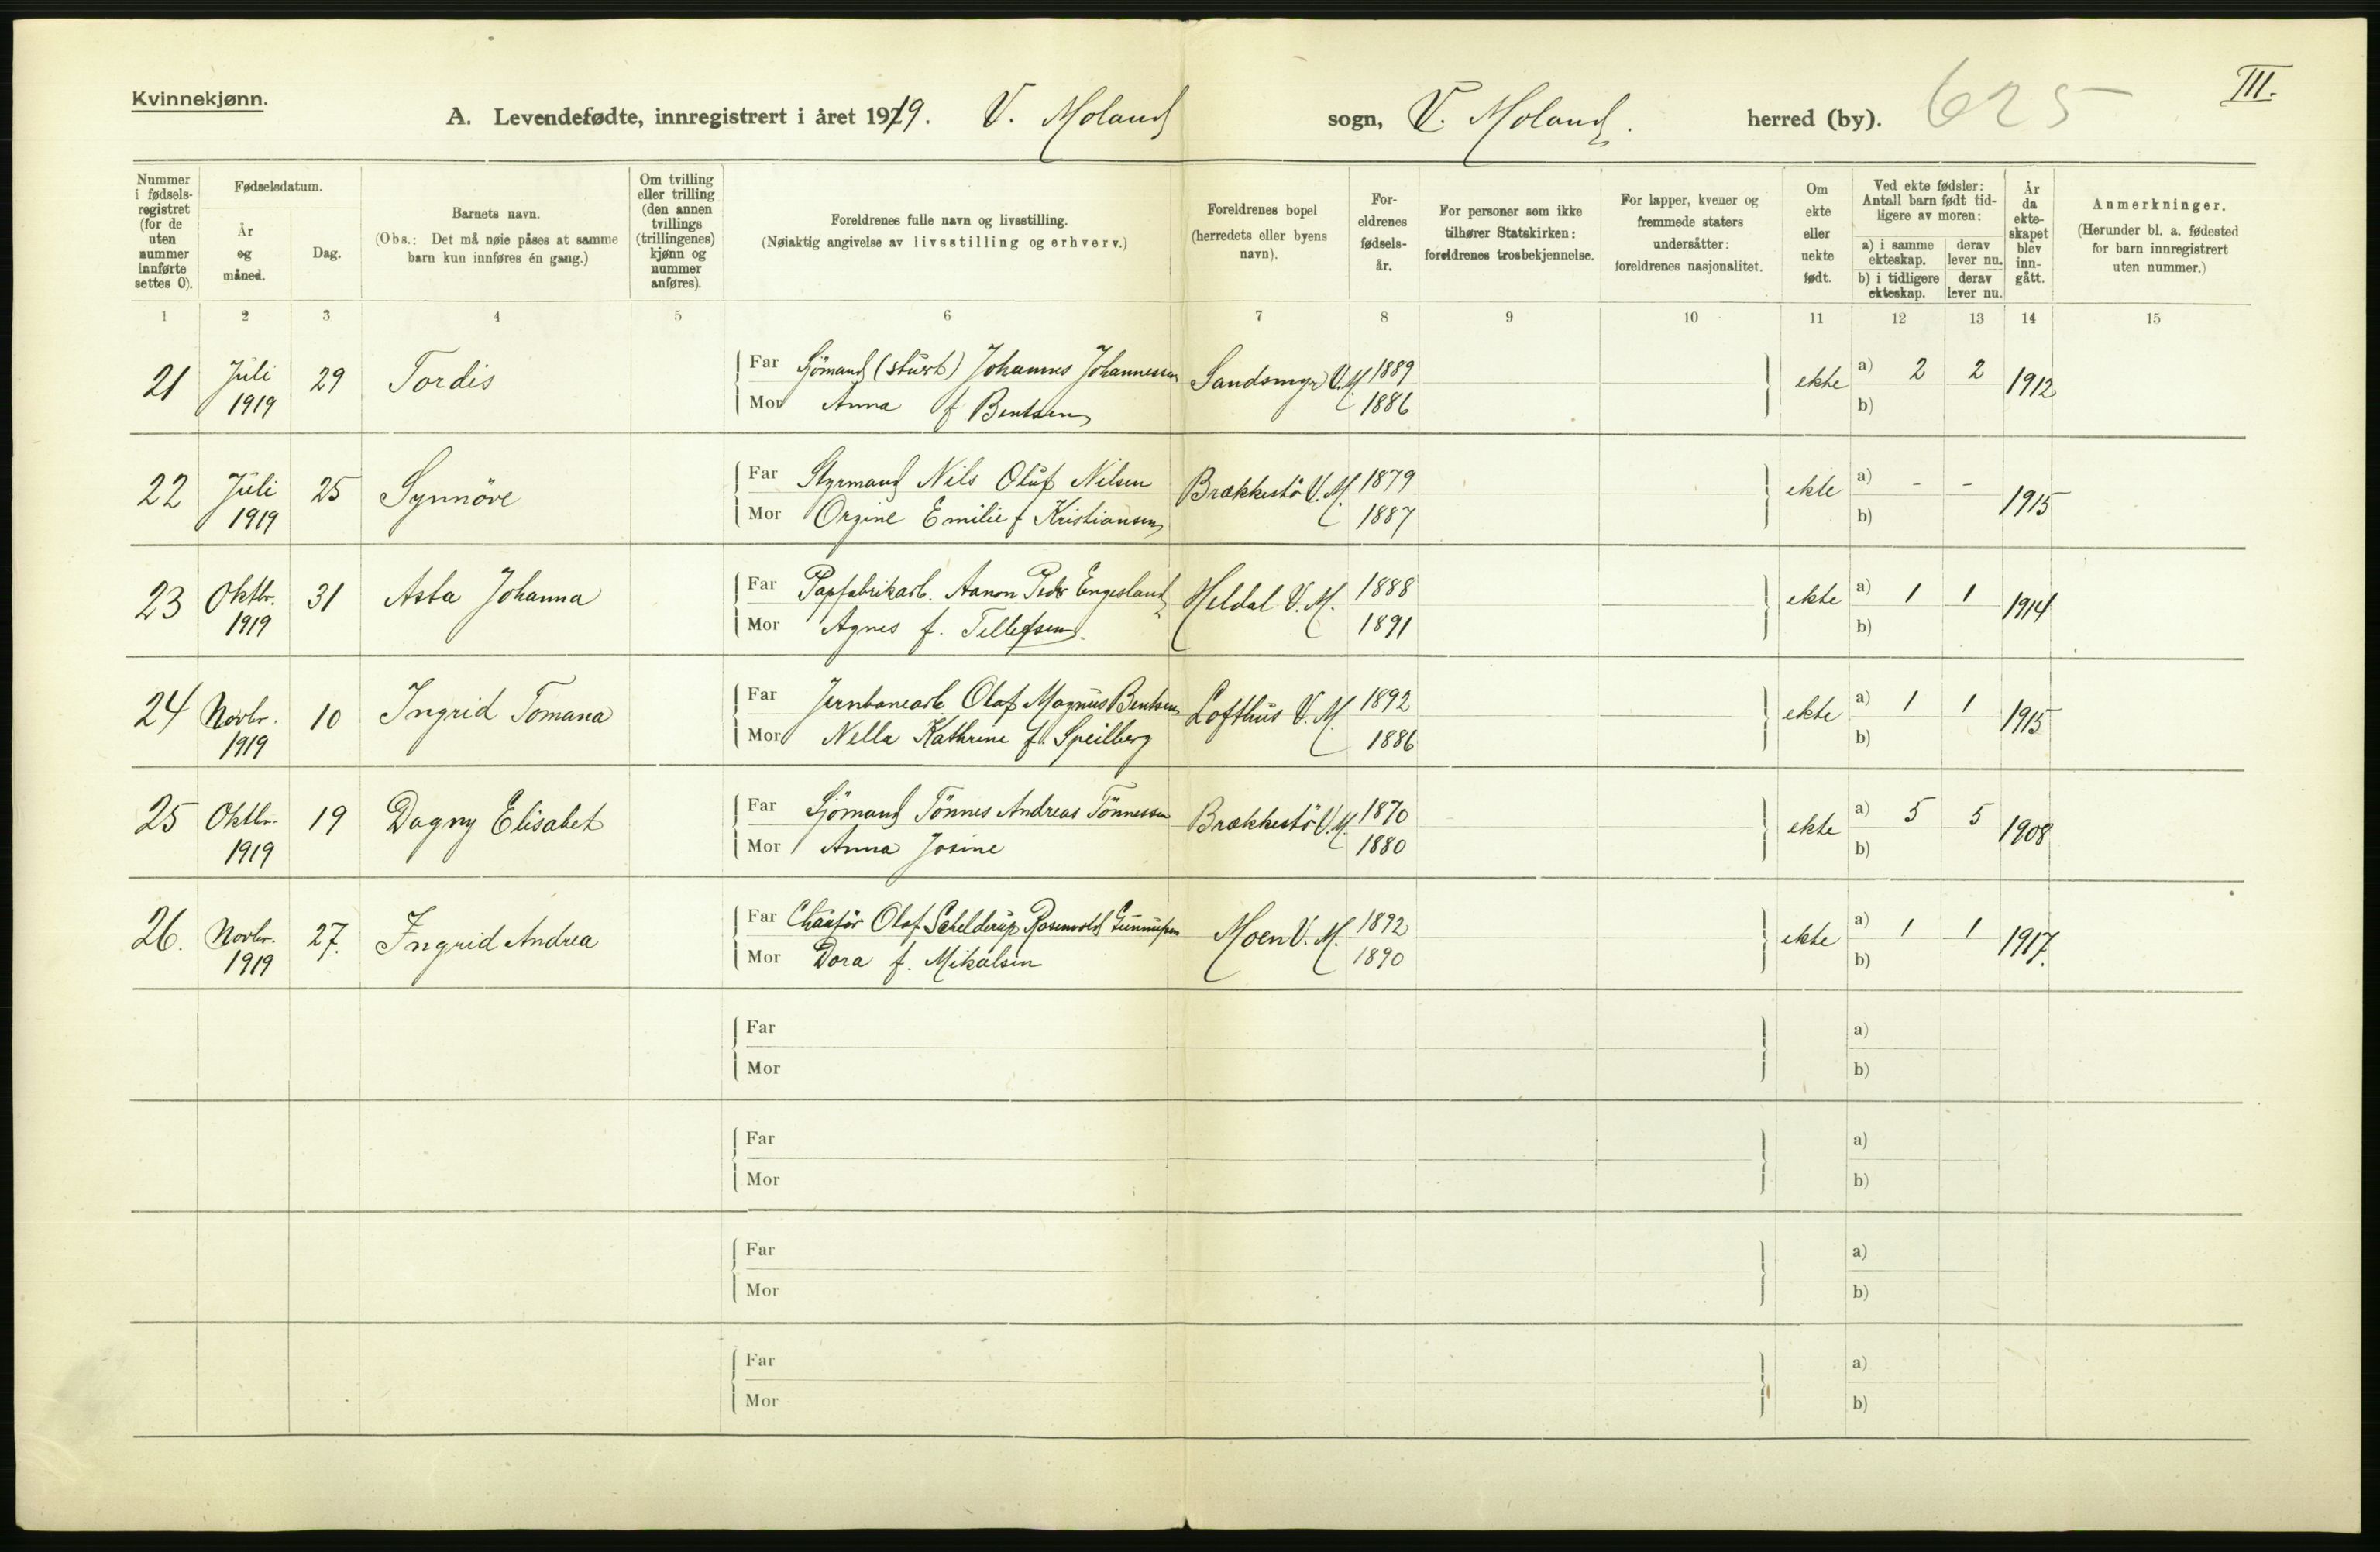 Kvinnekjønn.
III.
A. Levendefødte, innregistrert i året 1919. V. Moland sogn, V. Moland. herred (by). 625
Nummer i fødsels-registret (for de uten nummer innførte settes 0).
Fødselsdatum.
År og måned.
Dag.
Barnets navn.
(Obs.: Det må nøie påses at samme barn kun innføres én gang.)
Om tvilling eller trilling (den annen tvillings (trillingenes) kjønn og nummer anføres).
Foreldrenes fulle navn og livsstilling.
(Nøiaktig angivelse av livsstilling og erhverv.)
Foreldrenes bopel (herredets eller byens navn).
For-eldrenes fødsels-år.
For personer som ikke tilhører Statskirken: foreldrenes trosbekjennelse.
For lapper, kvener og fremmede staters undersåtter: foreldrenes nasjonalitet.
Om ekte eller uekte født.
Ved ekte fødsler: Antall barn født tid-ligere av moren:
a) i samme ekteskap.
derav lever nu.
b) i tidligere ekteskap.
derav lever nu.
År da ekte-skapet blev inn-gått.
Anmerkninger.
(Herunder bl. a. fødested for barn innregistrert uten nummer.)
1 2 3 4 5 6 7 8 9 10 11 12 13 14 15
21 Juli 1919 29 Tordis
Far Sjömand (stuert) Johannes Johannessen Sandsmyr V.M. 1889
Mor Anna f Bentsen 1886
ekte a) 2 2 1912
b)
22 Juli 1919 25 Synnöve
Far Styrmand Nils Oluf Nilsen Brækkestö V.M. 1879
Mor Orgine Emilie f Kristiansen 1887
ekte a) - - 1915
b)
23 Oktbr. 1919 31 Asta Johanna
Far Papfabrikarb. Aanon Peder Engesland Heldal V.M. 1888
Mor Agnes f. Tellefsen. 1891
ekte a) 1 1 1914
b)
24 Novbr. 1919 10 Ingrid Tomana
Far Jernbanearb. Olaf Magnus Bentsen Lofthus V.M. 1892
Mor Nella Kathrine f. Speilberg 1886
ekte a) 1 1 1915
b)
25 Oktbr. 1919 19 Dagny Elisabet
Far Sjömand Tönnes Andreas Tönnessen Brækkestö V.M. 1870
Mor Anna Josine 1880
ekte a) 5 5 1908
b)
26. Novbr. 1919 27. Ingrid Andrea
Far Chauför Olaf Schelderup Rosenvold Moen V.M. 1892
Mor Dora f. Mikalsen 1890
ekte a) 1 1 1917.
b)
Far a)
Mor b)
Far a)
Mor b)
Far a)
Mor b)
Far a)
Mor b)